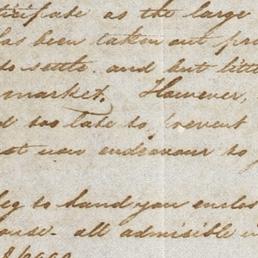 ticipate as the large
has been taken out pro
to settle. and but littl
market. However,
d too late to prevent
at now endeavour to
beg to hand you enclos
ouse all admisible i